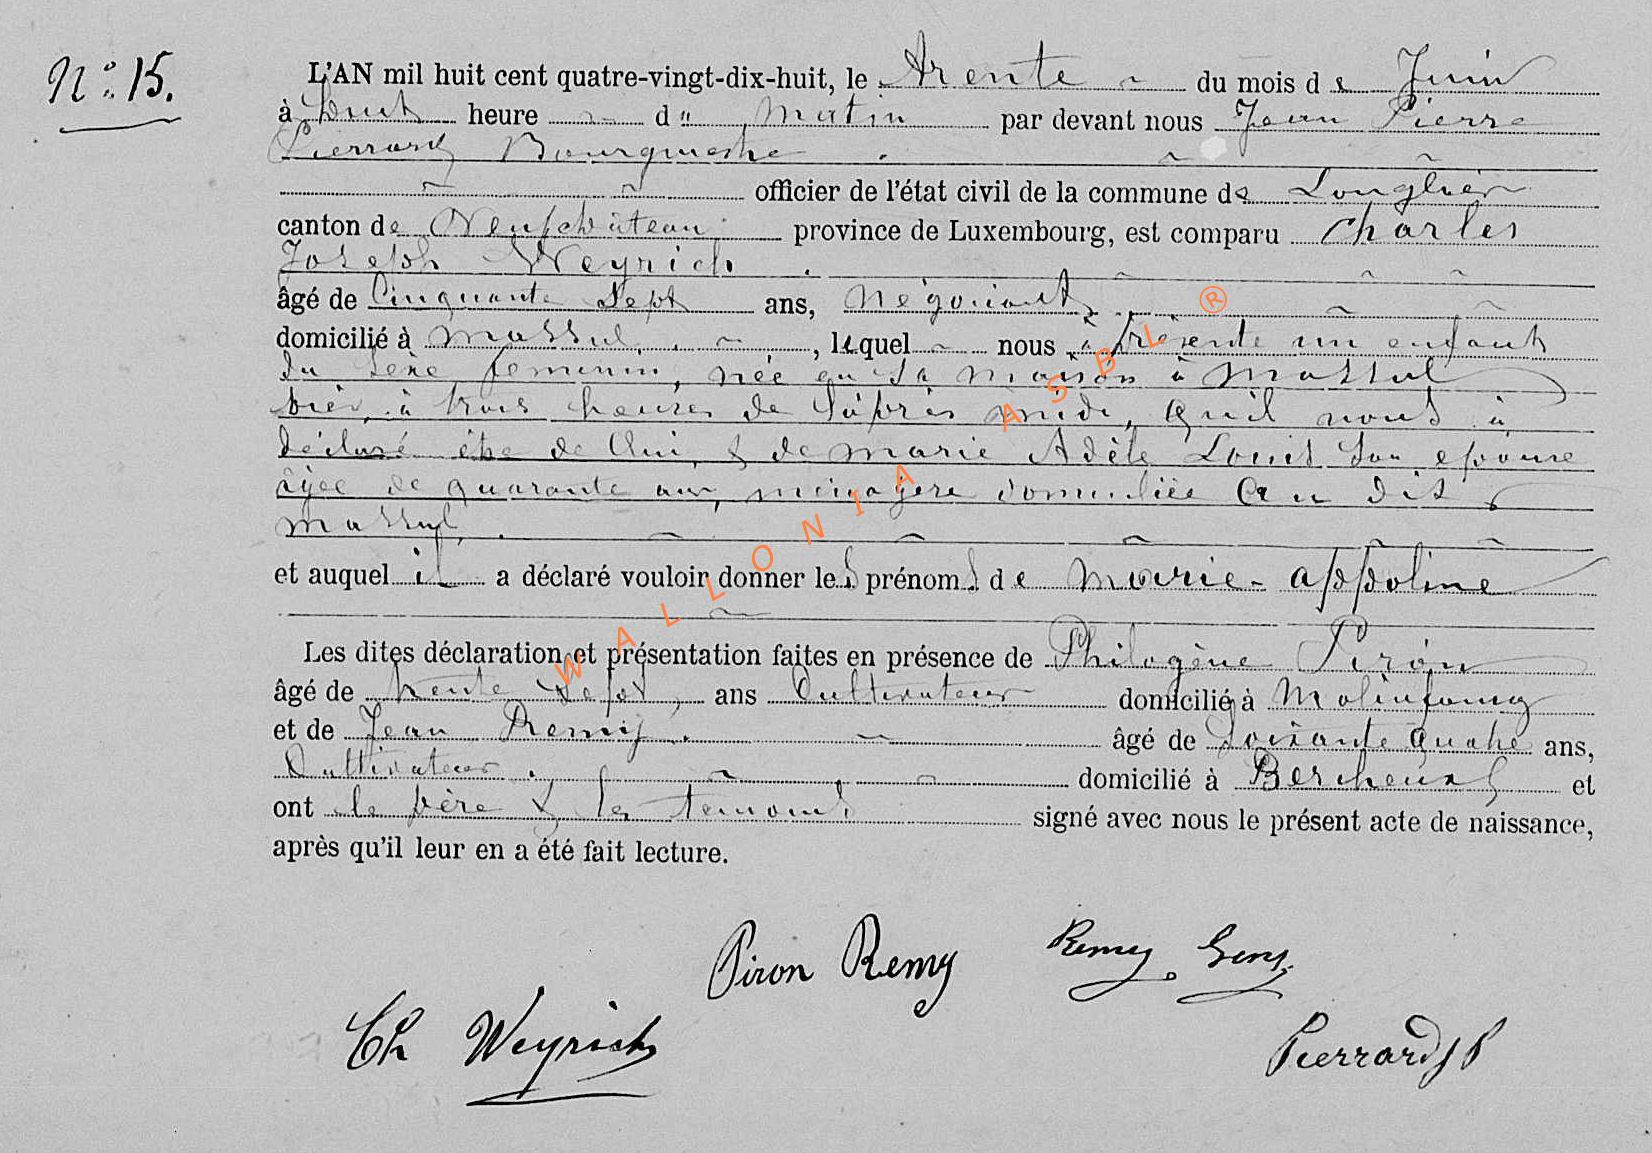 N° 15.
L'AN mil huit cent quatre-vingt-dix-huit, le trente du mois de Juin
à huit heure du matin par devant nous Jean Pierre
Pierrard Bourgmestre
officier de l'état civil de la commune de Longlier
canton de Neufchâteau province de Luxembourg, est comparu Charles
Joseph Weyrich
âgé de Cinquante Sept ans, négociant
domicilié à Massul, lequel nous a présenté un enfant
du sexe feminin, née en sa maison à Massul
hier, à trois heures de l'après midi, qu'il nous à
déclaré être de lui, & de Marie Adèle Louis son epouse
âgée de quarante ans, ménagère domiciliée au dit
Massul.
et auquel il a déclaré vouloir donner les prénoms de Marie-appoline
Les dites déclaration et présentation faites en présence de Philogène Piron
âgé de trente Sept, ans Cultivateur domicilié à Molinfaing
et de Jean Remy. âgé de Soixante quatre ans,
Cultivateur. domicilié à Bercheux et
ont le père & les témoins signé avec nous le présent acte de naissance,
après qu'il leur en a été fait lecture.
Piron Remy Remy
Ch Weyrich Pierrard J P
WALLONIA ASBL ®